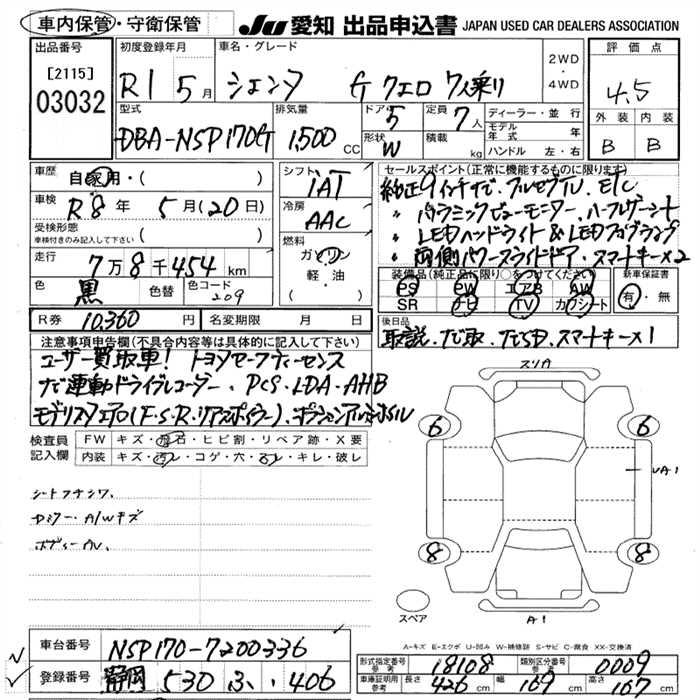 車内保管・守衛保管 JU 愛知 出品申込書 JAPAN USED CAR DEALERS ASSOCIATION
出品番号 初度登録年月 車名・グレード 評価点
[2115] 03032 R1 5月 シエンタ G クエロ 7人乗り 2WD・4WD 4.5
型式 排気量 ドア 定員 ディーラー・並行 外装 内装
DBA-NSP170G 1,500 CC 5 7人 モデル年式 年 B B
形状 W 積載 kg ハンドル 左・右
車歴 自家用・( ) シフト IAT セールスポイント(正常に機能するものに限ります)
車検 R8年 5月(20日) 冷房 AAC 純正9インチナビ・フルセグTV・ETC
受検形態 車検付きのみ記入して下さい ( ) ・パノラミックビューモニター・ハーフレザーシート
燃料 ガソリン 軽・油 ・LEDヘッドライト&LEDフォグランプ
走行 7万8千454km ・両側パワースライドドア・スマートキー×2
色 黒 色替 色コード 209 装備品(純正品に限り○をつけてください) 新車保証書
PS PW エアB AW 有・無
SR ナビ TV カワシート
R券 10,360円 名変期限 月 日 後日品
取説・ナビ取・ナビSD・スマートキー×1
注意事項申告欄(不具合内容等は具体的に記入して下さい)
ユーザー買取車! トヨタセーフティーセンス
ナビ連動ドライブレコーダー・PCS・LDA・AHB
モデリスタエアロ(F・S・R・リアスポイラー)
検査員記入欄 FW キズ・飛石・ヒビ割・リペア跡・X要
内装 キズ・汚レ・コゲ・穴・スレ・キレ・破レ
スリA
6 6
UA1
シートフチシワ、
A/Wキズ
8 8
スペア
A1
A-キズ E-エクボ U-凹み W-補修跡 S-サビ C-腐食 XX-交換済
車台番号 NSP170-7200336
形式指定番号 参考 18108 類別区分番号 参考 0009
登録番号 静岡 530 ふ 406
車庫証明用 参考 長さ 426 cm 幅 169 cm 高さ 167 cm